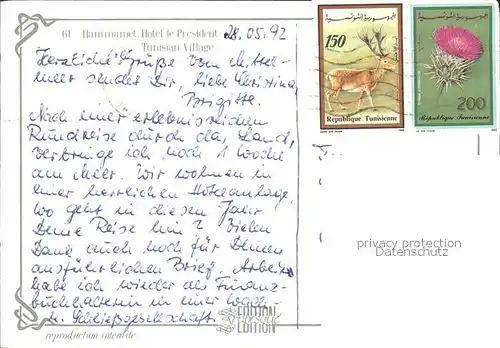 61 Hammamet. Hotel le President
Tunisian Village
28.05.92
Herzliche Grüße vom Mittel-
meer sendet Dir, liebe Christina,
Brigitte.
Nach einer erlebnisreichen
Rundreise durch das Land,
verbringe ich noch 1 Woche
am Meer. Wir wohnen in
einer herrlichen Hotelanlage.
Wo geht in diesem Jahr
Deine Reise hin? Vielen
Dank auch noch für Deinen
ausführlichen Brief. Arbeite
habe ich wieder als Finanz-
buchhalterin in einer Wach-
u. Schließgesellschaft.
EDITION
EDITION
reproduction interdite
الجمهورية التونسية
150
République Tunisienne
الجمهورية التونسية
200
République Tunisienne
privacy protection
Datenschutz